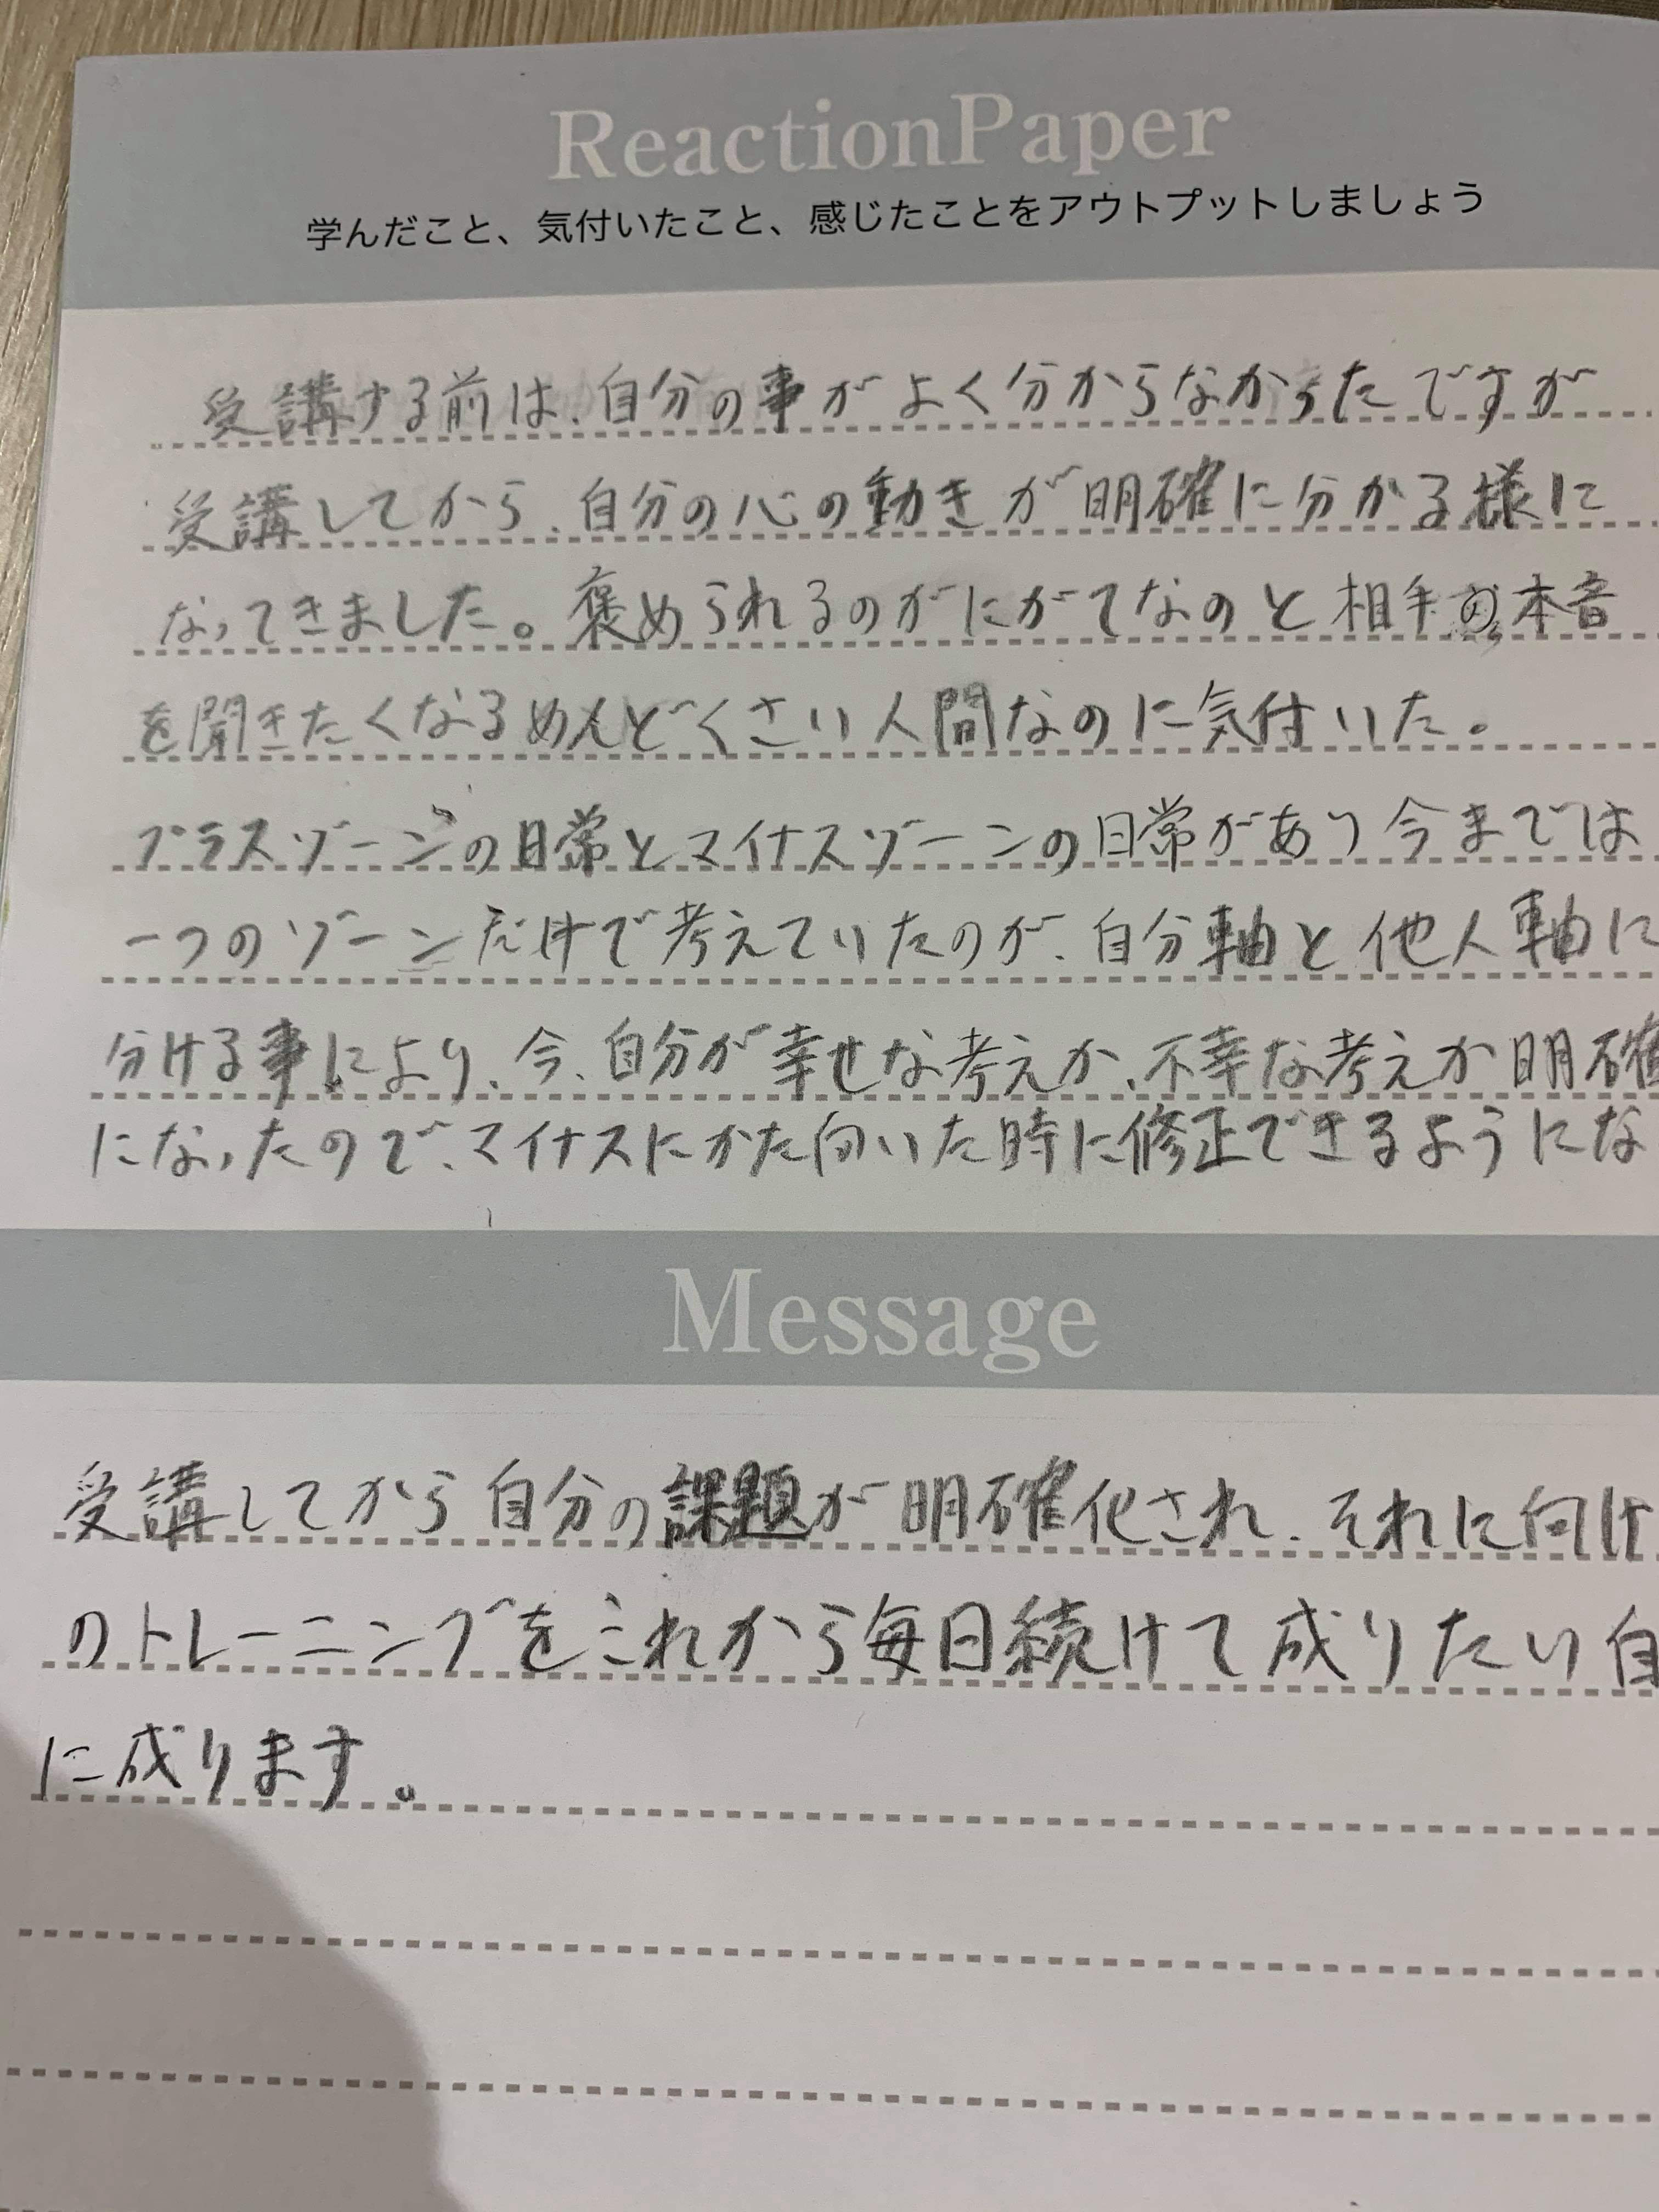 ReactionPaper
学んだこと、気付いたこと、感じたことをアウトプットしましょう
受講する前は、自分の事がよく分からなかったですが
受講してから、自分の心の動きが明確に分かる様に
なってきました。褒められるのがにがてなのと相手の本音
を聞きたくなるめんどくさい人間なのに気付いた。
プラスゾーンの日常とマイナスゾーンの日常があり今までは
一つのゾーンだけで考えていたのが、自分軸と他人軸に
分ける事により、今、自分が幸せな考えか、不幸な考えか明確
になったので、マイナスにかた向いた時に修正できるようにな
Message
受講してから自分の課題が明確化され、それに向け
のトレーニングをこれから毎日続けて成りたい自
に成ります。